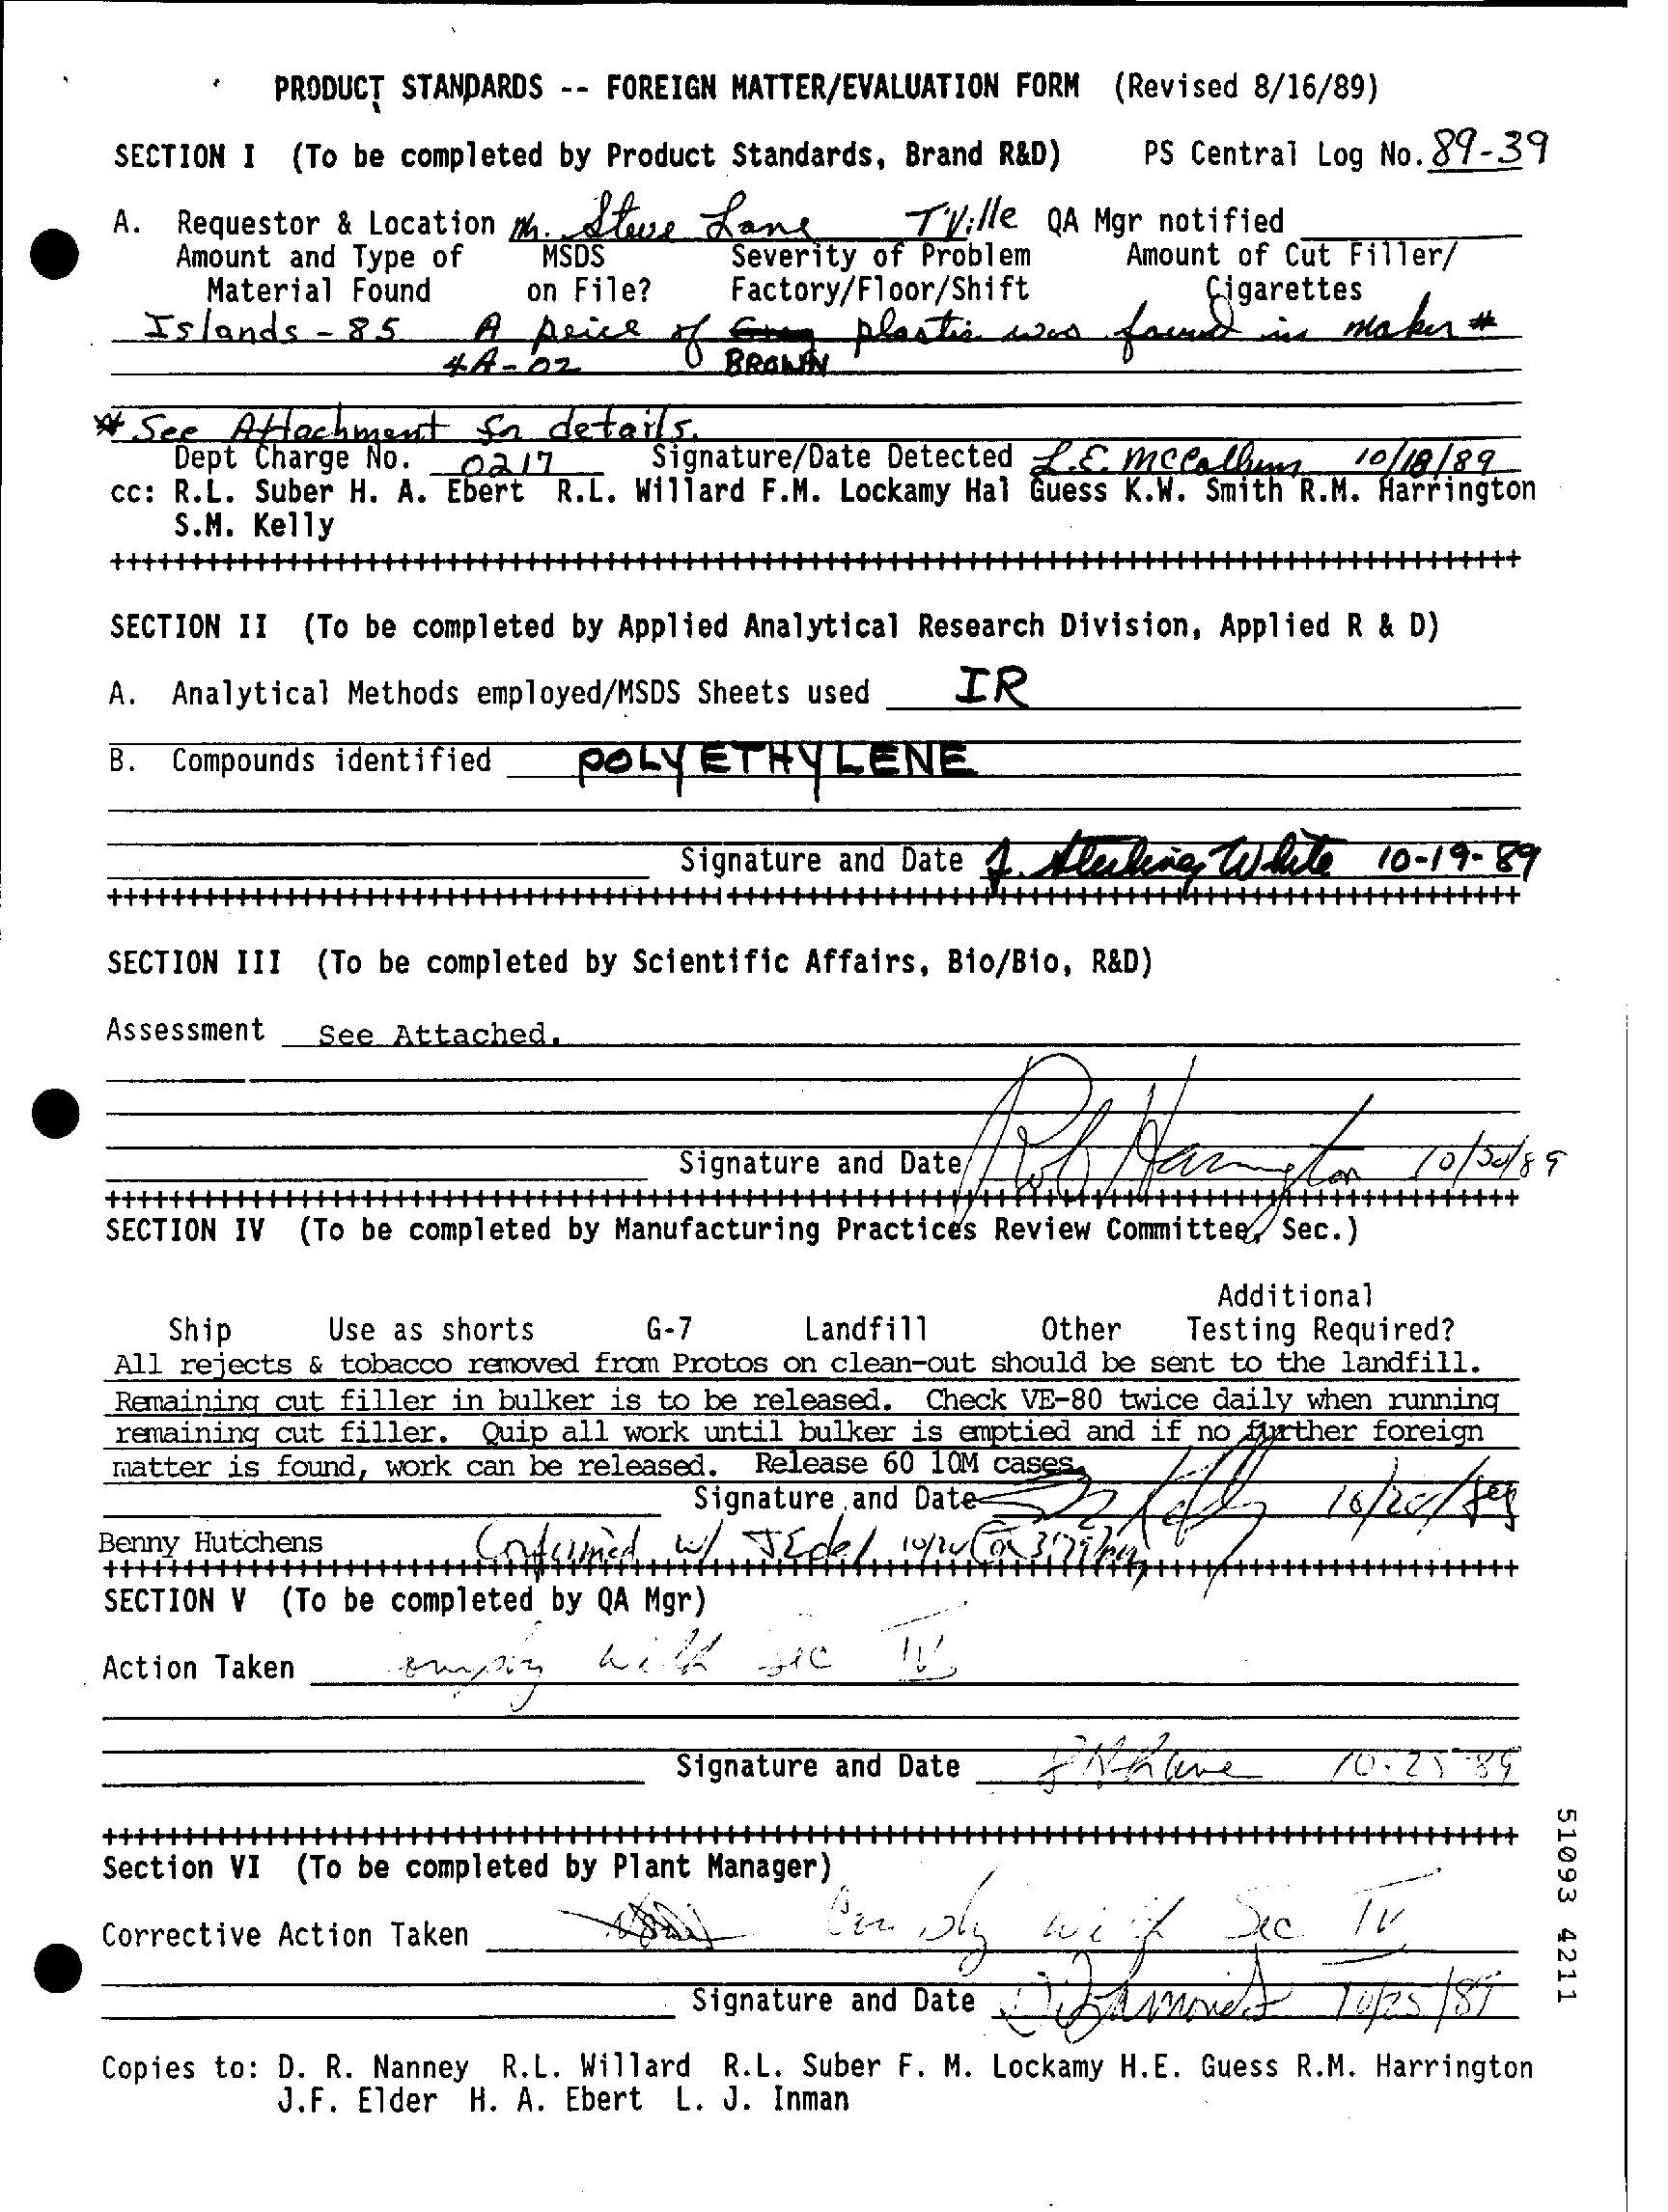 PRODUCT STANDARDS -- FOREIGN MATTER/EVALUATION FORM (Revised 8/16/89)
SECTION I (To be completed by Product Standards, Brand R&D) PS Central Log No. 89-39
A. Requestor & Location Mr. Steve Lane T'Ville QA Mgr notified
Amount and Type of MSDS Severity of Problem Amount of Cut Filler/
Material Found on File? Factory/Floor/Shift Cigarettes
Islands - 85 A peice of plastic was found in maker #
4A-02 BROWN
* See Attachment for details.
Dept Charge No. 0217 Signature/Date Detected L.E. McCallum 10/18/89
cc: R.L. Suber H. A. Ebert R.L. Willard F.M. Lockamy Hal Guess K.W. Smith R.M. Harrington
S.M. Kelly
SECTION II (To be completed by Applied Analytical Research Division, Applied R & D)
A. Analytical Methods employed/MSDS Sheets used IR
B. Compounds identified POLYETHYLENE
Signature and Date J. Sterling White 10-19-89
SECTION III (To be completed by Scientific Affairs, Bio/Bio, R&D)
Assessment See Attached.
Signature and Date Rob Harrington
SECTION IV (To be completed by Manufacturing Practices Review Committee, Sec.)
Additional
Ship Use as shorts G-7 Landfill Other Testing Required?
All rejects & tobacco removed from Protos on clean-out should be sent to the landfill.
Remaining cut filler in bulker is to be released. Check VE-80 twice daily when running
remaining cut filler. Quip all work until bulker is emptied and if no further foreign
matter is found, work can be released. Release 60 10M cases.
Signature and Date
Benny Hutchens Confirmed w/
SECTION V (To be completed by QA Mgr)
Action Taken with sec IV
Signature and Date 10-25-89
Section VI (To be completed by Plant Manager)
Corrective Action Taken Comply with Sec IV
Signature and Date 10/25/89
Copies to: D. R. Nanney R.L. Willard R.L. Suber F. M. Lockamy H.E. Guess R.M. Harrington
J.F. Elder H. A. Ebert L. J. Inman
51093 4211